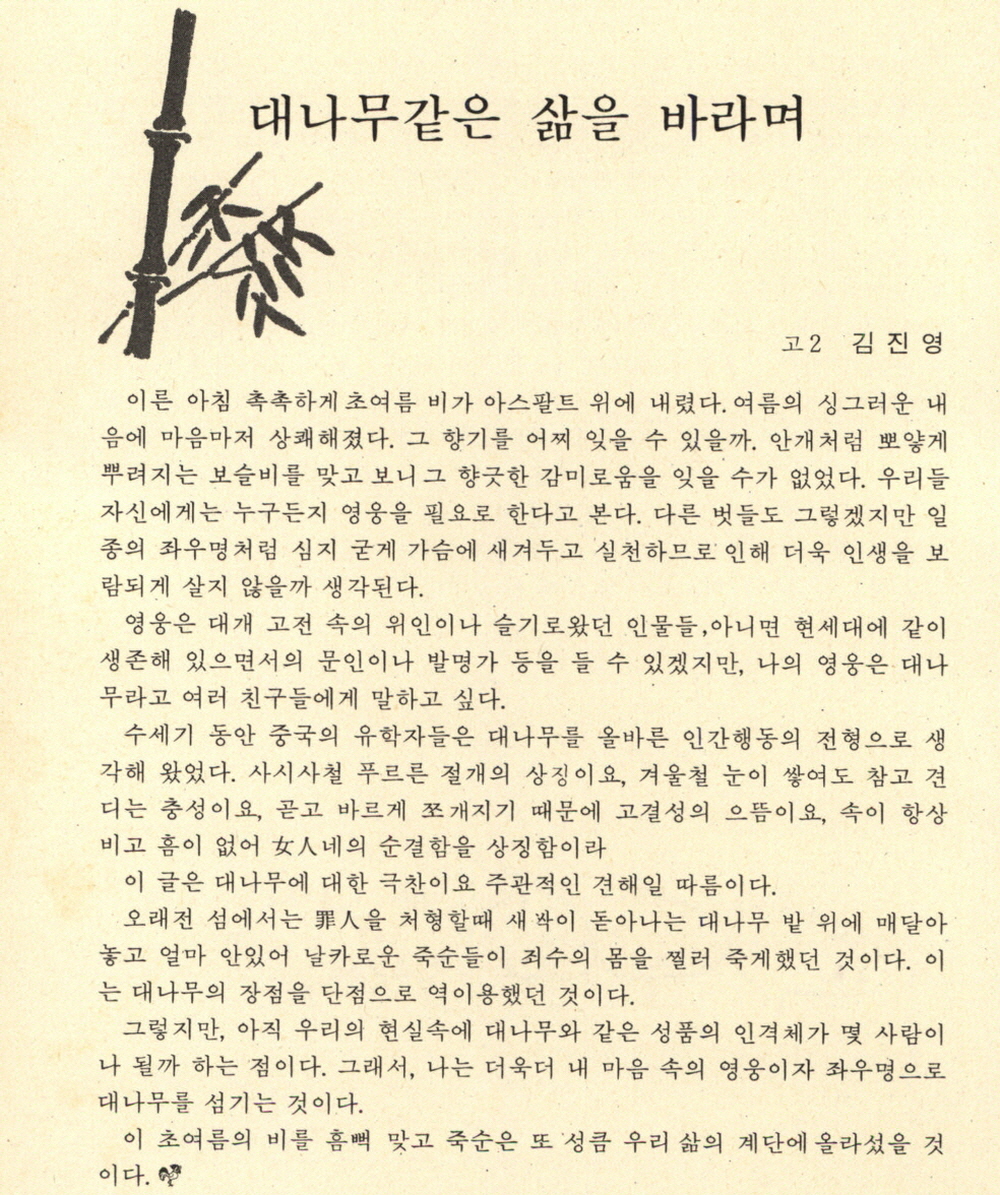 대나무같은 삶을 바라며
고2 김진영
이른 아침 촉촉하게 초여름 비가 아스팔트 위에 내렸다. 여름의 싱그러운 내
음에 마음마저 상쾌해졌다. 그 향기를 어찌 잊을 수 있을까. 안개처럼 뽀얗게
뿌려지는 보슬비를 맞고 보니 그 향긋한 감미로움을 잊을 수가 없었다. 우리들
자신에게는 누구든지 영웅을 필요로 한다고 본다. 다른 벗들도 그렇겠지만 일
종의 좌우명처럼 심지 굳게 가슴에 새겨두고 실천하므로 인해 더욱 인생을 보
람되게 살지 않을까 생각된다.
영웅은 대개 고전 속의 위인이나 슬기로왔던 인물들, 아니면 현세대에 같이
생존해 있으면서의 문인이나 발명가 등을 들 수 있겠지만, 나의 영웅은 대나
무라고 여러 친구들에게 말하고 싶다.
수세기 동안 중국의 유학자들은 대나무를 올바른 인간행동의 전형으로 생
각해 왔었다. 사시사철 푸르른 절개의 상징이요, 겨울철 눈이 쌓여도 참고 견
디는 충성이요, 곧고 바르게 쪼개지기 때문에 고결성의 으뜸이요, 속이 항상
비고 흠이 없어 女人네의 순결함을 상징함이라
이 글은 대나무에 대한 극찬이요 주관적인 견해일 따름이다.
오래전 섬에서는 罪人을 처형할때 새싹이 돋아나는 대나무 밭 위에 매달아
놓고 얼마 안있어 날카로운 죽순들이 죄수의 몸을 찔러 죽게했던 것이다. 이
는 대나무의 장점을 단점으로 역이용했던 것이다.
그렇지만, 아직 우리의 현실속에 대나무와 같은 성품의 인격체가 몇 사람이
나 될까 하는 점이다. 그래서, 나는 더욱더 내 마음 속의 영웅이자 좌우명으로
대나무를 섬기는 것이다.
이 초여름의 비를 흠뻑 맞고 죽순은 또 성큼 우리 삶의 계단에 올라섰을 것
이다.